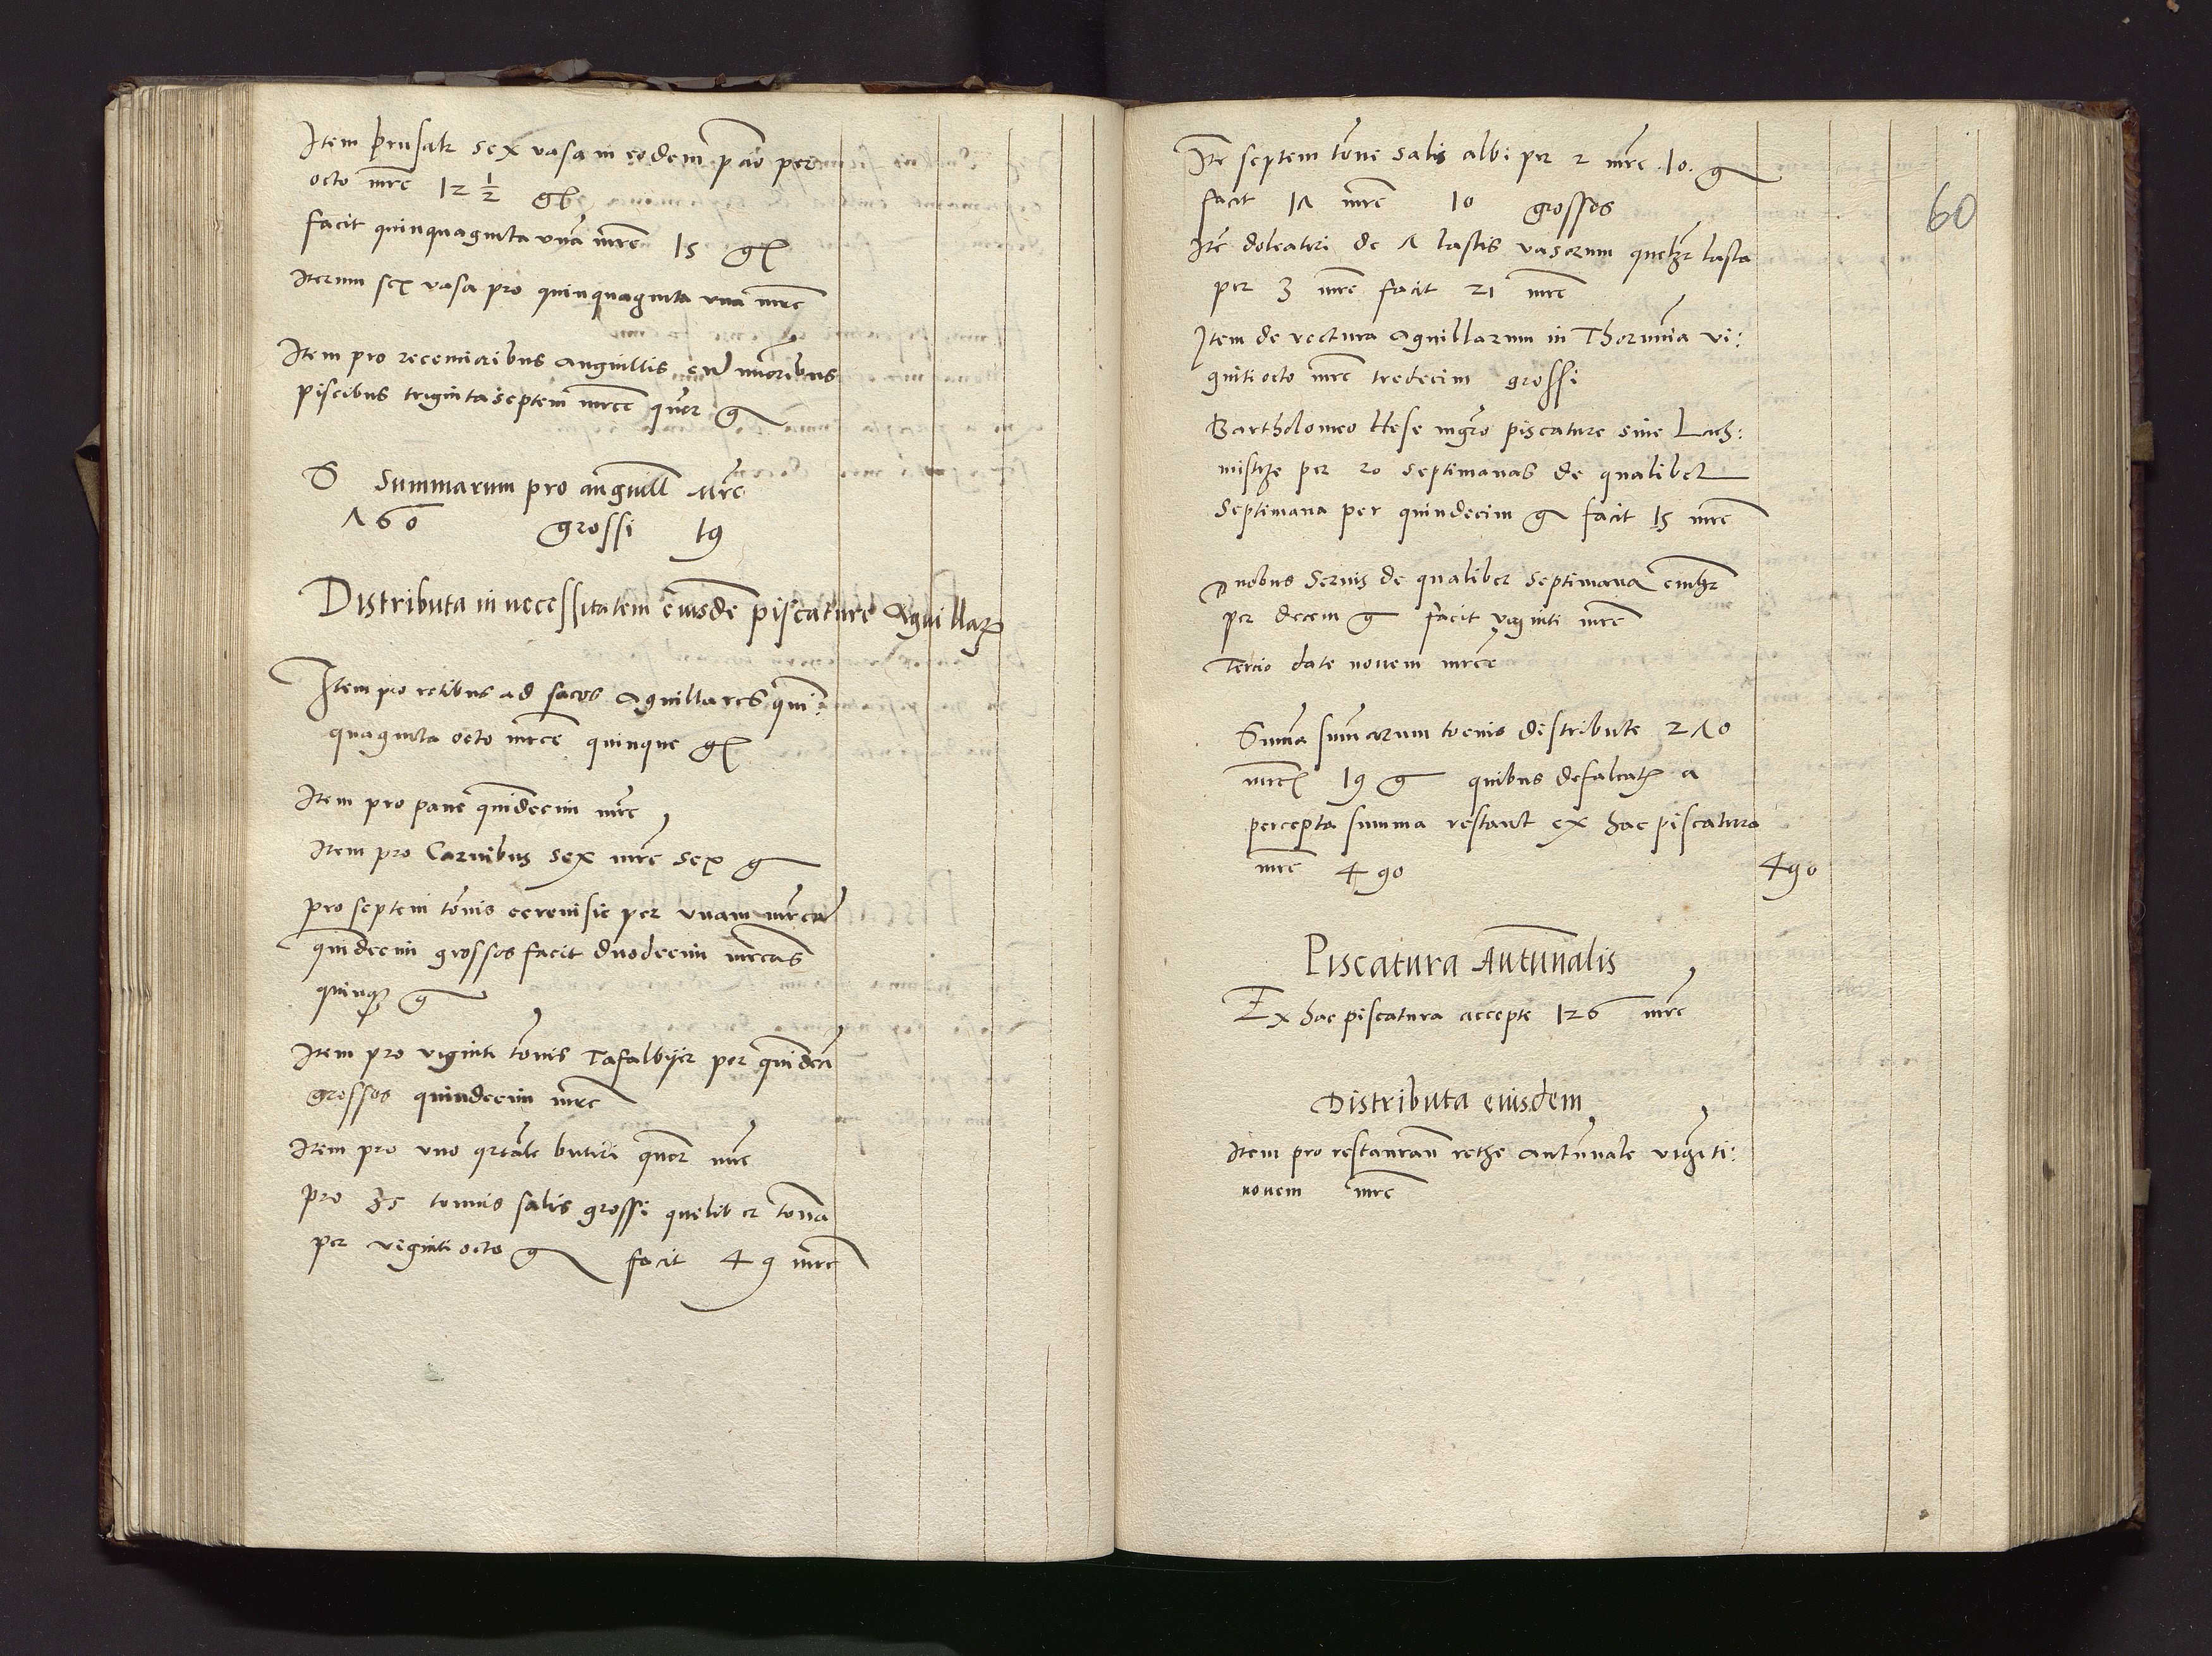 Item prusatz sex vasa in eodem p̄cio per
octo mrc̄ 12 ½ gß
facit quinquaginta vnā mrc̄ 15 gß
Iterum sex vasa pro quinquaginta vna mrc̄
Item pro recentioribus anguillis et minoribus
piscibus triginta septem mrce quor g
S Summarum pro anguill mrc̄
760 grossi 19
Distributa in necessitatem eiusdē piscature Aguillarꝫ
Item pro retibus ad sacos Aguillares quin:
quaginta octo mrce quinque gß
Item pro pane quindecim mrc̄
Item pro Carnibus sex mrc̄ sex g
pro septem tōnis cereuisie per vnam mrcā
quindecim grossos facit duodecim mrcas
quinqꝫ g
Item pro viginti tōnis Tafalbyer per quindeci
grossos quindecim mrc̄
Item pro vno qrtāle butiri quor mrc̄
pro 35 tonnis salis grossi quelibet tonā
per viginti octo g facit 49 mrc̄
60
Itē septem tōne salis albi per 2 mrc̄ 10. g
facit 17 mrc̄ 10 grossos
Itē doleatori de 7 lastis vasorum quelꝫ lasta
per 3 mrc̄ facit 21 mrc̄
Item de vectura Aguillarum in Thorunia vi:
ginti octo mrc̄ tredecim grossi
Bartholomeo Hese mgro piscature siue Lach:
mistrze per 20 septimanas de qualibet
Septimana per quindecim g facit 15 mrc̄
Duobus Seruis de qualibet septimana
per decem g facit viginti mrc̄
Tercio date nouem mrce
Suma sumarum tocius distribute 270
mrce 19 g quibus defalcatꝫ a
percepta summa restant ex hac piscatura
mrc̄ 490 490
Piscatura Autumnalis
Ex hac piscatura accepte 126 mrc̄
Distributa eiusdem
Item pro restauran rethe autūnale viginti:
nouem mrc̄